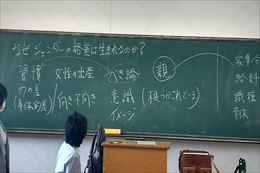 なぜジェンダーの格差は生まれるのか?
習慣 女性の出産 べき論 親 家事分
力の差 / 向き不向き 意識 (植えつけされている) 給料
(身体的差) イメージ 職種
育休